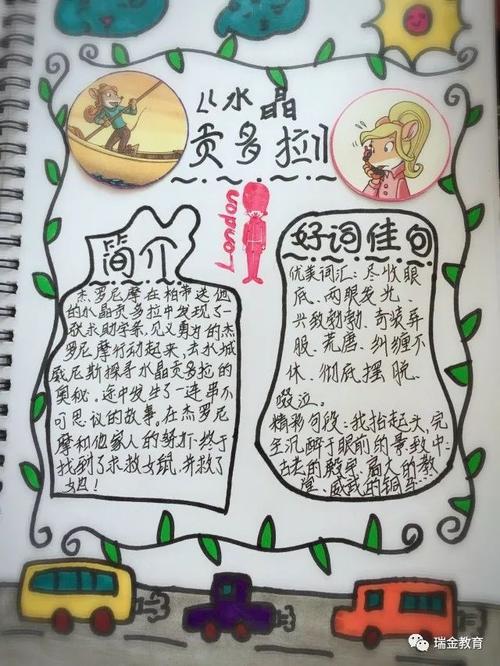 《水晶
贡多拉》
London
简介
杰罗尼摩在柏蒂送他
的水晶贡多拉中发现了一
张求助字条,见义勇为的杰
罗尼摩行动起来,去水城
威尼斯探寻水晶贡多拉的
奥秘。途中发生了一连串不
可思议的故事。在杰罗尼
摩和他家人的 终于
找到了求救女鼠,并救了
她!
好词佳句
优美词汇:尽收眼
底、两眼发光、
兴致勃勃、奇装异
服、荒唐、纠缠不
休、彻底摆脱、
啜泣。
精彩句段:我抬起头,完
全沉醉于眼前的景致中:
古老的 高大的教
堂、威武的铜
瑞金教育